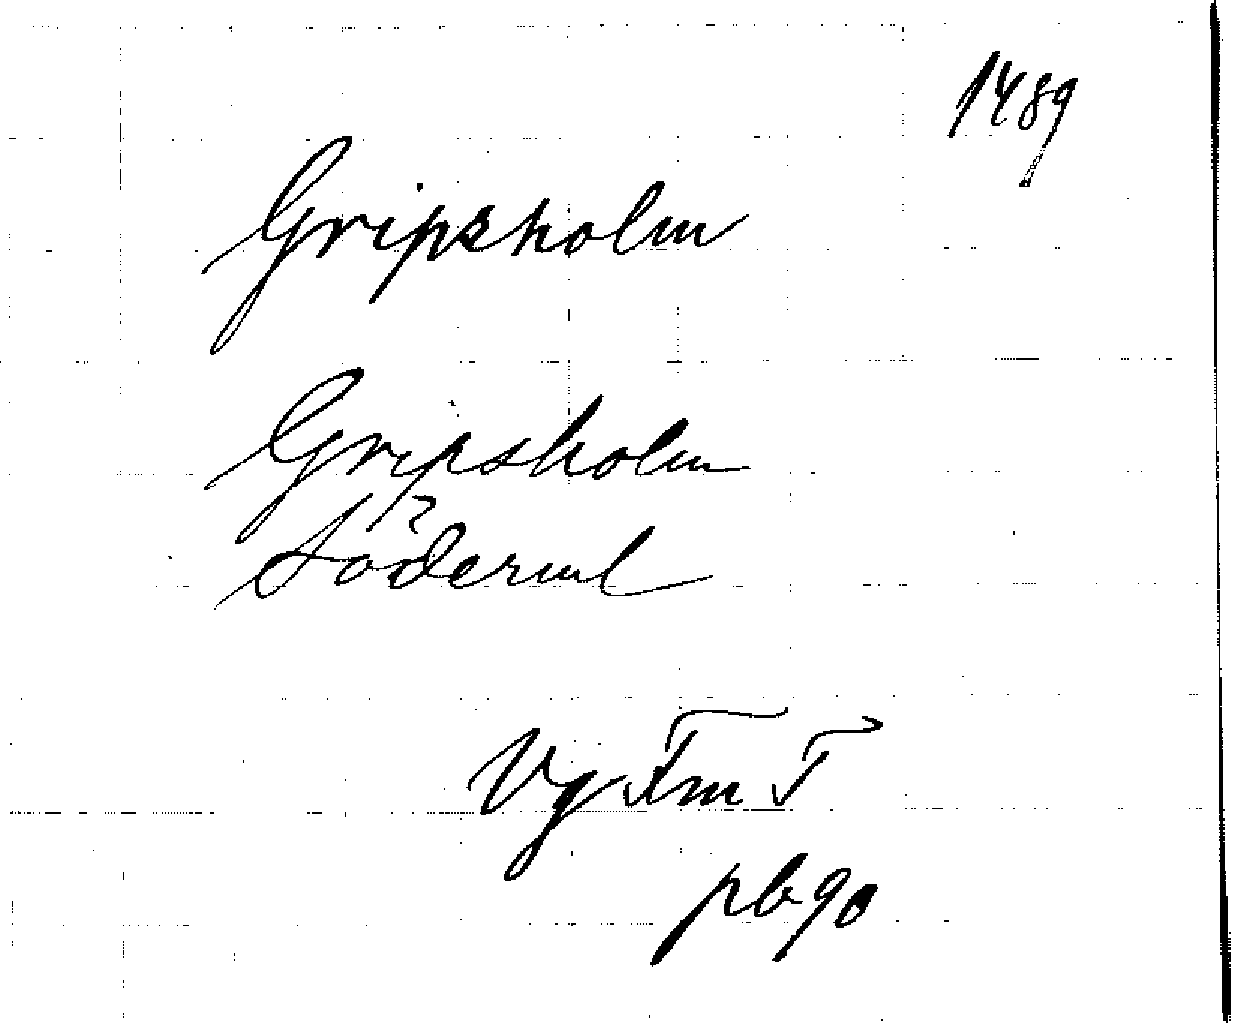 1489
Gripsholm
Gripsholm
Söderml
Vg Fm T
pb 90